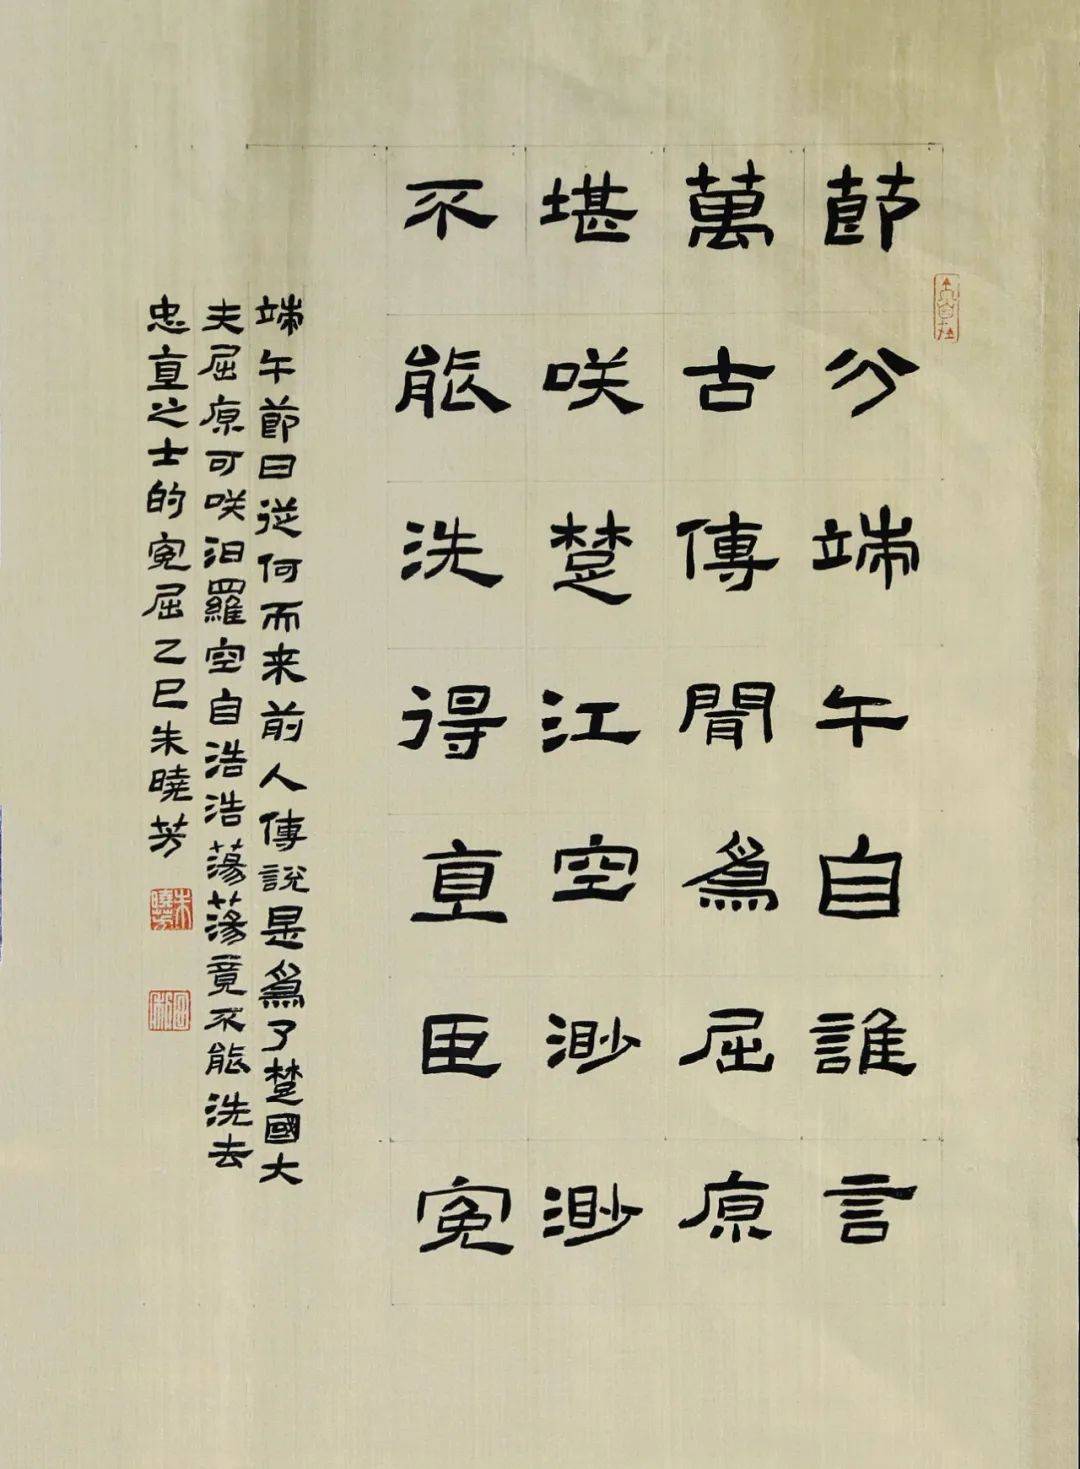 節分端午自誰言
萬古傳聞為屈原
堪咲楚江空渺渺
不能洗得直臣冤
端午節日從何而来前人傳說是為了楚國大
夫屈原可咲汨羅空自浩浩蕩蕩竟不能洗去
忠直之士的冤屈乙巳朱曉芳
朱曉芳